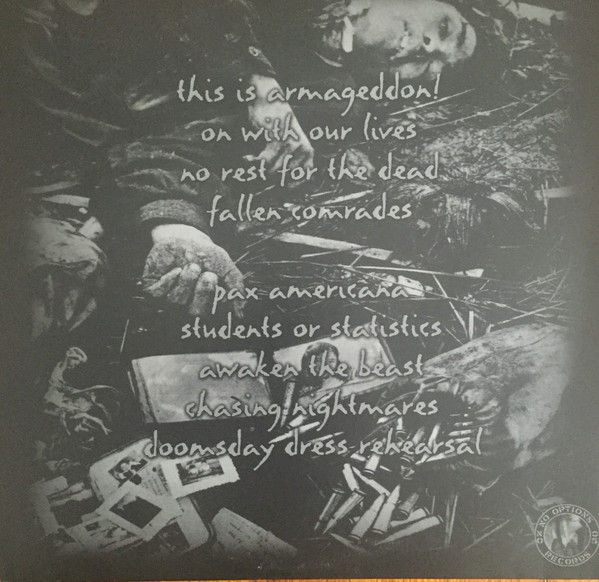 this is armageddon!
on with our lives
no rest for the dead
fallen comrades
pax americana
students or statistics
awaken the beast
chasing nightmares
doomsday dress rehearsal
NO OPTIONS
RECORDS